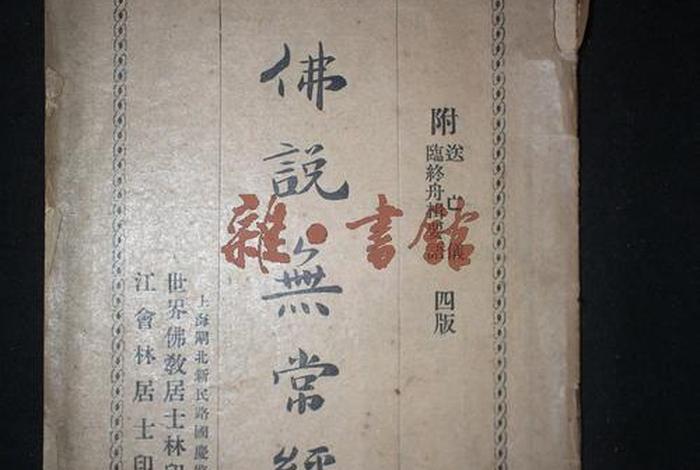 附
送亡儀
臨終舟楫要語
四版
佛說無常經
上海閘北新民路國慶路
世界佛教居士林印
江會林居士印
雜·書館